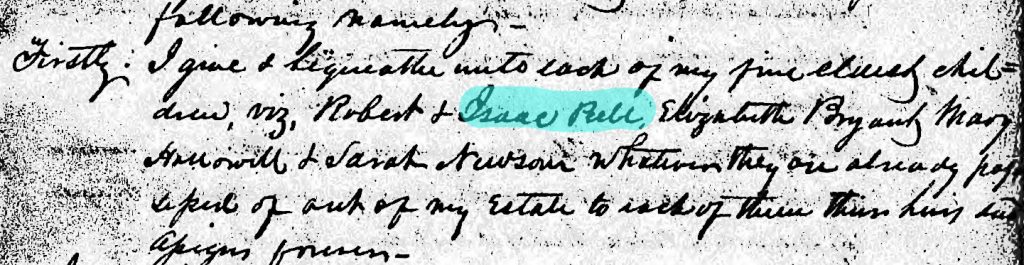 following namely –
Firstly: I give & bequeathe unto each of my five eldest chil=
dren, viz, Robert & Isaac Rell, Elizabeth Bryant, Mary
Hollowill & Sarah Newsom whatever they are already pos
sessed of out of my Estate to each of them their heirs and
assigns forever –